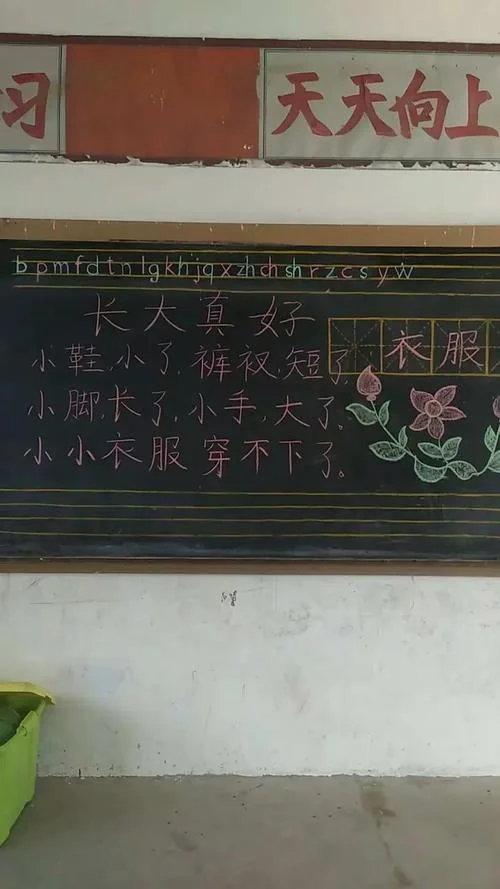 习 天天向上
b p m f d t n l g k h j q x zh ch sh r z c s y w
长大真好
小鞋,小了,裤衩,短了,
衣服
小脚,长了,小手,大了。
小小衣服穿不下了。